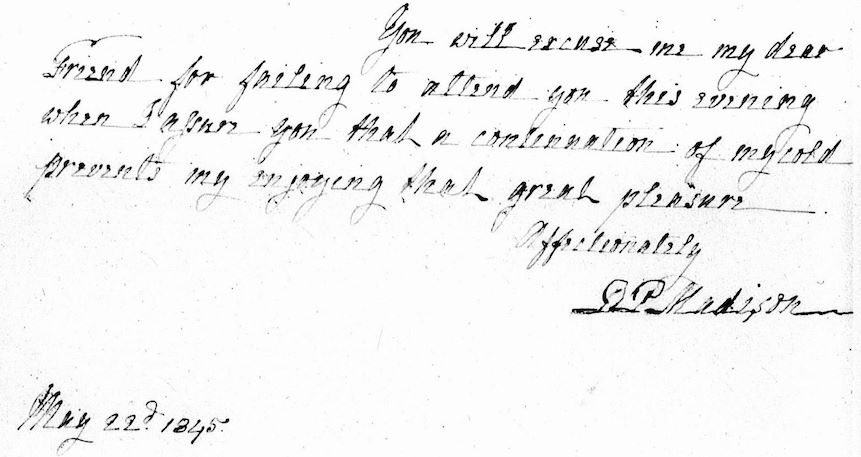 You will excuse me my dear
Friend for failing to attend you this evening
when I assure you that a continuation of my cold
prevents my enjoying that great pleasure
Affectionately
D P Madison
May 22d 1845